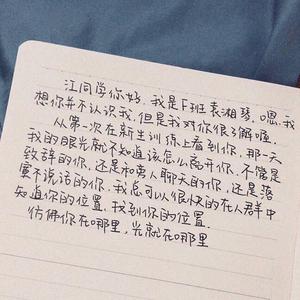 江同学你好,我是F班袁湘琴,嗯,我
想你并不认识我,但是我对你很了解喔,
从第一次在新生训练上看到你,那一天
我的眼光就不知道该怎么离开你,不管是
致辞的你,还是和男人聊天的你,还是落
寞不说话的你,我总可以很快的在人群中
知道你的位置,找到你的位置.
仿佛你在哪里,光就在哪里